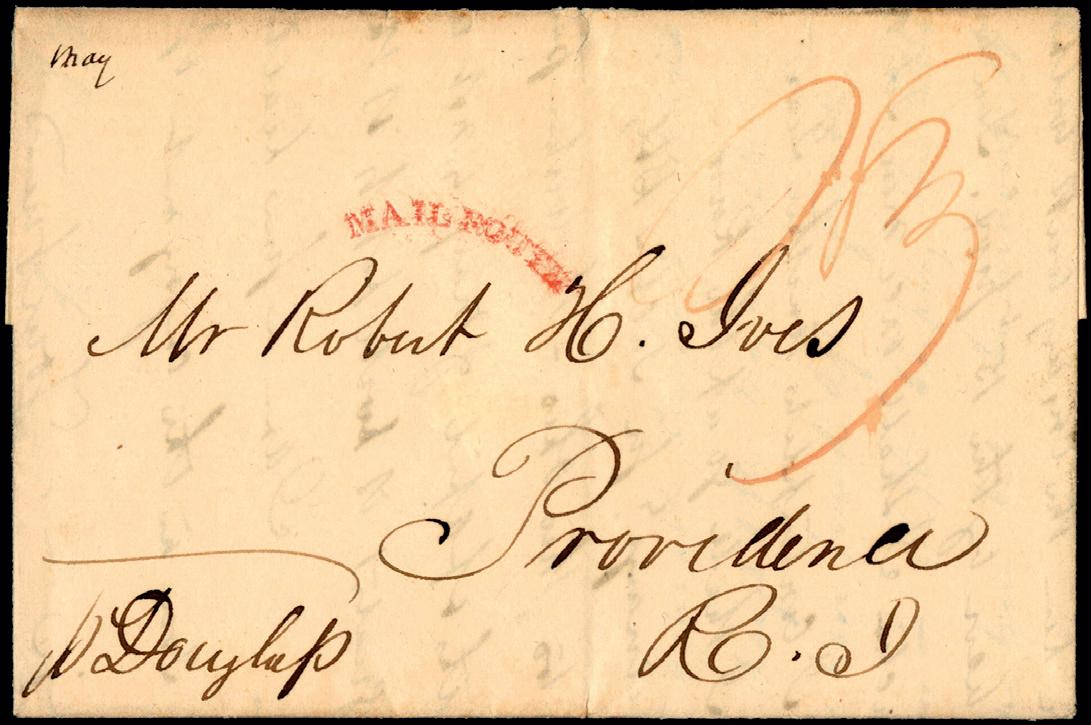 May
MAIL ROUTE
Mr Robert H. Ives
Providence
R. I
Douglass